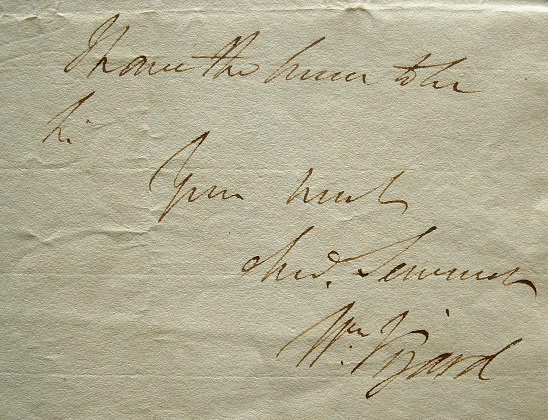 I have the honor to be
Sir
Your most
Obed. Servant
Wm. Vizard